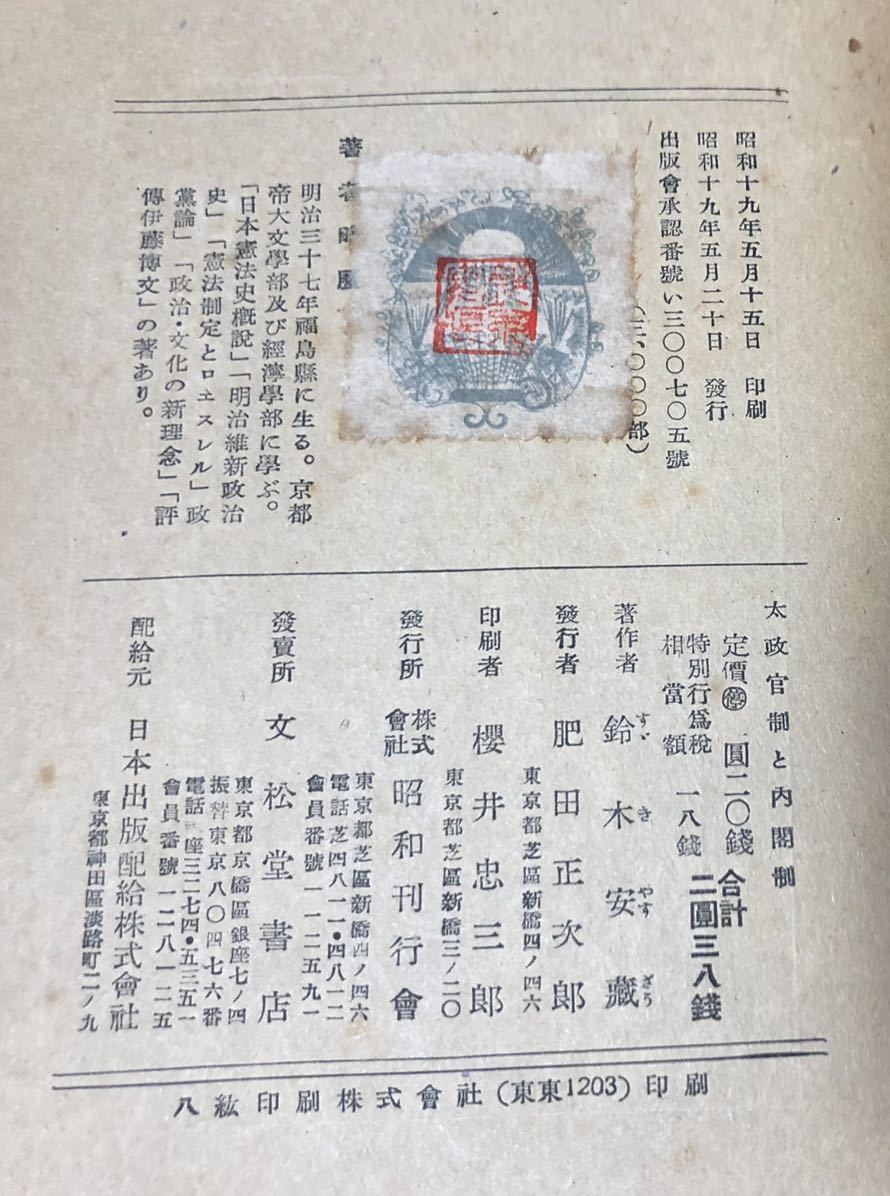 昭和十九年五月十五日　印刷
昭和十九年五月二十日　發行
出版會承認番號い三〇〇七〇五號
（三、〇〇〇部）
著者略歷
明治三十七年福島縣に生る。京都
帝大文學部及び經濟學部に學ぶ。
「日本憲法史概說」「明治維新政治
史」「憲法制定とロエスレル」政
黨論」「政治・文化の新理念」「評
傳伊藤博文」の著あり。
太政官制と內閣制
定價㊝　圓二〇錢
特別行爲稅
相當額　一八錢
合計
二圓三八錢
著作者　鈴木安藏
すゞ き やす ざう
發行者　肥田正次郎
東京都芝區新橋四ノ四六
印刷者　櫻井忠三郎
東京都芝區新橋三ノ二〇
發行所　株式會社　昭和刊行會
東京都芝區新橋四ノ四六
電話芝四八一一・四八一二
會員番號一一二五九一
發賣所　文松堂書店
東京都京橋區銀座七ノ四
振替東京八〇四七六番
電話　座三二七四・五三五一
會員番號一二八一二五
配給元　日本出版配給株式會社
東京都神田區淡路町二ノ九
八紘印刷株式會社（東東1203）印刷